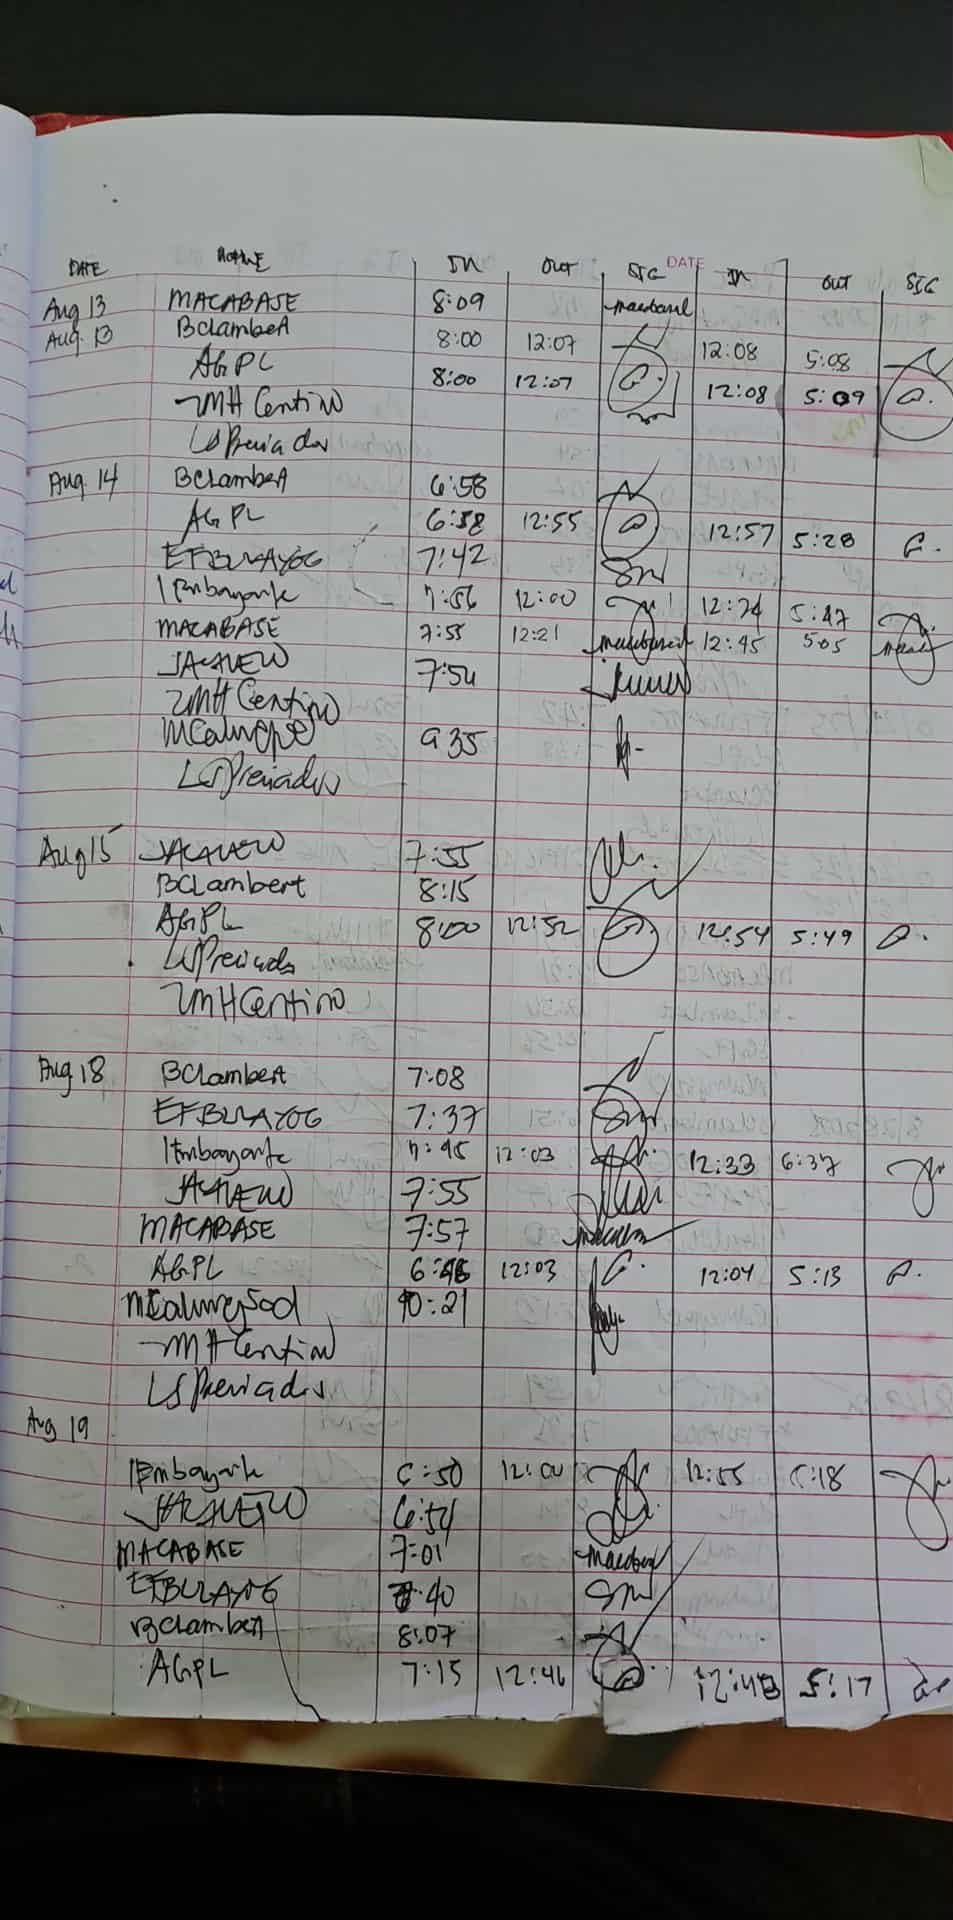 DATE NAME IN OUT SIG DATE IN OUT SIG
Aug 13 MACABASE 8:09
Aug. 13 BClambert 8:00 12:07 12:08 5:08
AGPL 8:00 12:07 12:08 5:09
ZMH Centino
LS Preciados
Aug. 14 BClambert 6:58
AGPL 6:58 12:55 12:57 5:28
EFBULAYOG 7:42
IEmbayarte 7:56 12:00 12:34 5:47
MACABASE 7:55 12:21 12:45 5:05
JACAVERO 7:54
ZMH Centino
9 35
LS Preciados
Aug 15 JACAVERO 7:55
BCLambert 8:15
AGPL 8:00 12:52 12:54 5:49
LS Preciados
ZMH Centino
Aug 18 BClambert 7:08
EFBULAYOG 7:37
IEmbayarte 7:45 12:03 12:33 6:37
JACAVERO 7:55
MACABASE 7:57
AGPL 12:03 12:04 5:13
10:21
ZMH Centino
LS Preciados
Aug 19
IEmbayarte 6:50 12:00 12:55 5:18
JACAVERO 6:54
MACABASE 7:01
EFBULAYOG 7:40
BClambert 8:07
AGPL 7:15 12:46 12:48 5:17